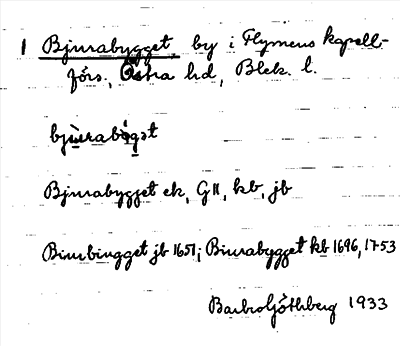 1 Bjurabygget, by i Flymens kapell-
förs., Östra hd, Blek. l.
bju̇rabyg̀ət
Bjurabygget ek, GK, kb, jb
Biurbiugget jb 1651; Biurabygget kb 1696, 1753
Barbro Göthberg 1933